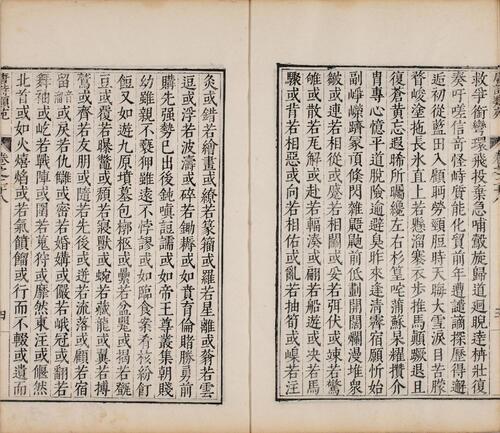 救爭銜彎環飛投棄急哺鷇旋歸道迴睨達枿壯復
奏吁嗟信奇怪峙質能化貿前年遭譴謫探歷得邂
逅初從藍田入顧眄勞頸脰時天晦大雪淚目苦矇
瞀峻塗拖長氷直上若懸溜褰衣步推馬顛蹶退且
復蒼黃忘遐睎所矚纔左右杉篁咤蒲蘇杲耀攢介
胄專心憶平道脫險逾避臭昨來逢清霽宿願忻始
副崢嶸躋冢頂倐閃雜鼯鼬前低劃開闊爛漫堆衆
皺或連若相從或蹙若相鬭或妥若弭伏或竦若驚
雊或散若瓦解或赴若輻湊或翩若船遊或决若馬
驟或背若相惡或向若相佑或亂若抽筍或嵲若注
灸或錯若繪畫或繚若篆籀或羅若星離或蓊若雲
逗或浮若波濤或碎若鋤耨或如賁育倫賭勝勇前
購先强勢已出後鈍嗔浢譳或如帝王尊叢集朝賤
幼雖親不褻狎雖遠不悖謬或如臨食案肴核紛飣
餖又如遊九原墳墓包槨柩或纍若盆甖或揭若豋
豆或覆若曝鼈或頹若寢獸或蜿若藏龍或翼若搏
鷲或齊若友朋或隨若先後或迸若流落或顧若宿
留或戾若仇讎或密若婚媾或儼若峨冠或翻若
舞袖或屹若戰陣或圍若蒐狩或靡然東注或偃然
北首或如火熺焰或若氣饙餾或行而不輟或遺而
唐詩類苑
四